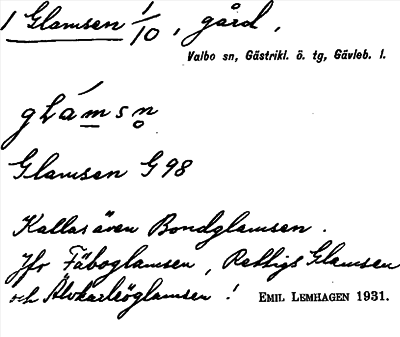 1 Glamsen 1/10, gård.
Valbo sn, Gästrikl. ö. tg, Gävleb. l.
glámsn̥
Glamsen G98
Kallas även Bondglamsen.
Jfr Fäboglamsen, Rettigs Glamsen
och Älvkarleöglamsen! EMIL LEMHAGEN 1931.